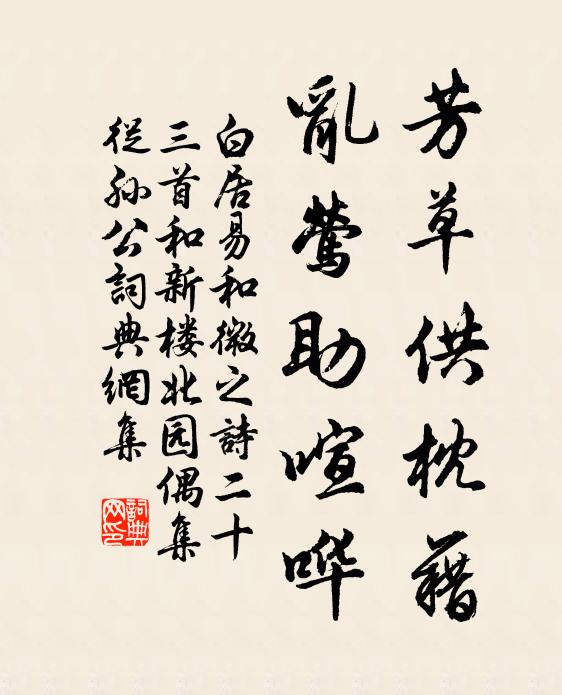 芳草供枕藉
亂莺助喧哗
白居易和微之詩二十
三首和新楼北园偶集
從孙公詞典網集
詞典
网印